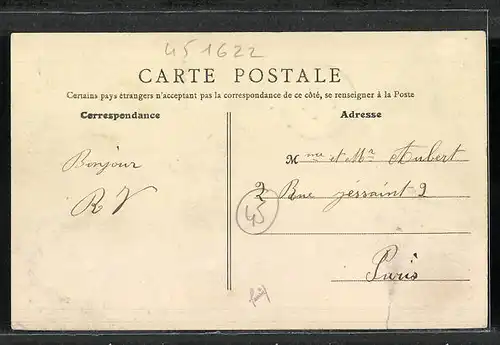 451622
CARTE POSTALE
Certains pays étrangers n'acceptant pas la correspondance de ce côté, se renseigner à la Poste
Correspondance
Adresse
Bonjour
R V
Mme et Mr Aubert
2 Rue jessaint 2
45
Paris